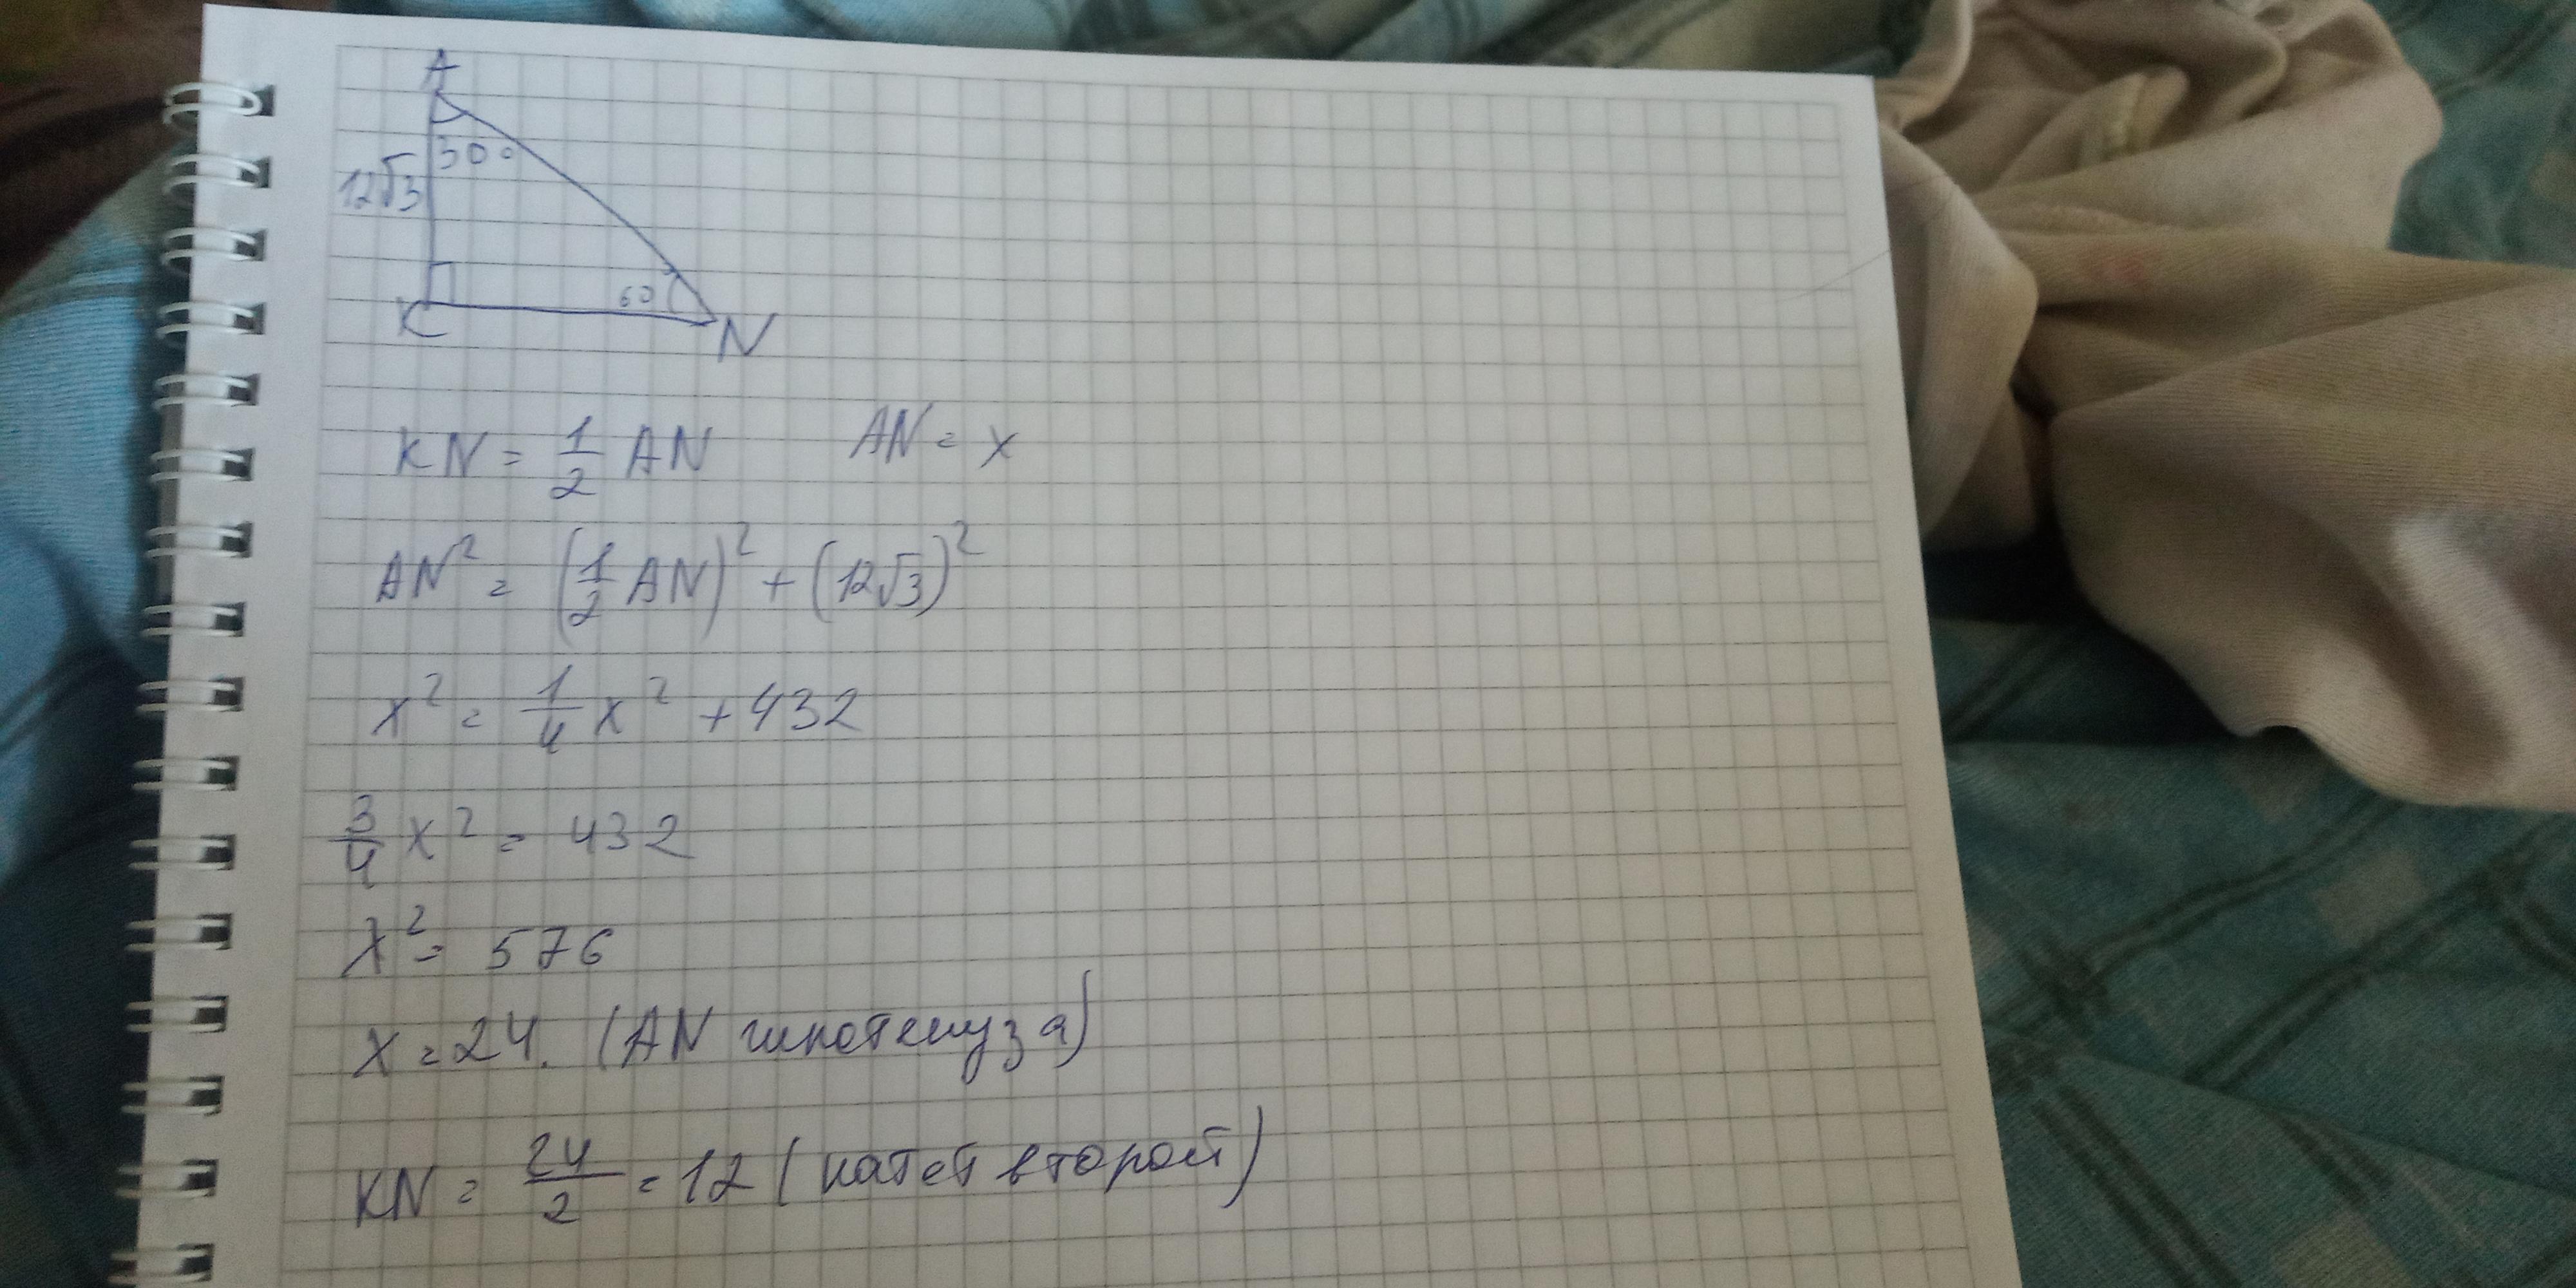 A
30°
12√3
60
K
N
KN = 1/2 AN AN = x
AN² = (1/2 AN)² + (12√3)²
x² = 1/4 x² + 432
3/4 x² = 432
x² = 576
x = 24. (AN гипотенуза)
KN = 24/2 = 12 (катет второй)